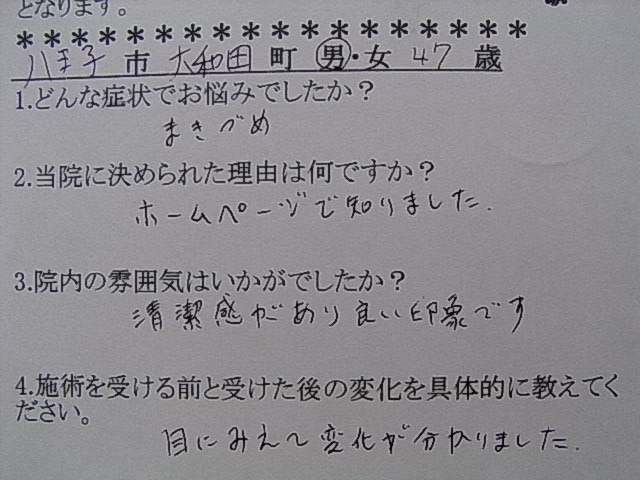 となります。
＊＊＊＊＊＊＊＊＊＊＊＊＊＊＊＊＊＊＊
八王子 市 大和田 町 男・女 47 歳
1.どんな症状でお悩みでしたか？
まきづめ
2.当院に決められた理由は何ですか？
ホームページで知りました.
3.院内の雰囲気はいかがでしたか？
清潔感があり良い印象です
4.施術を受ける前と受けた後の変化を具体的に教えてく
ださい。
目にみえて変化が分かりました.